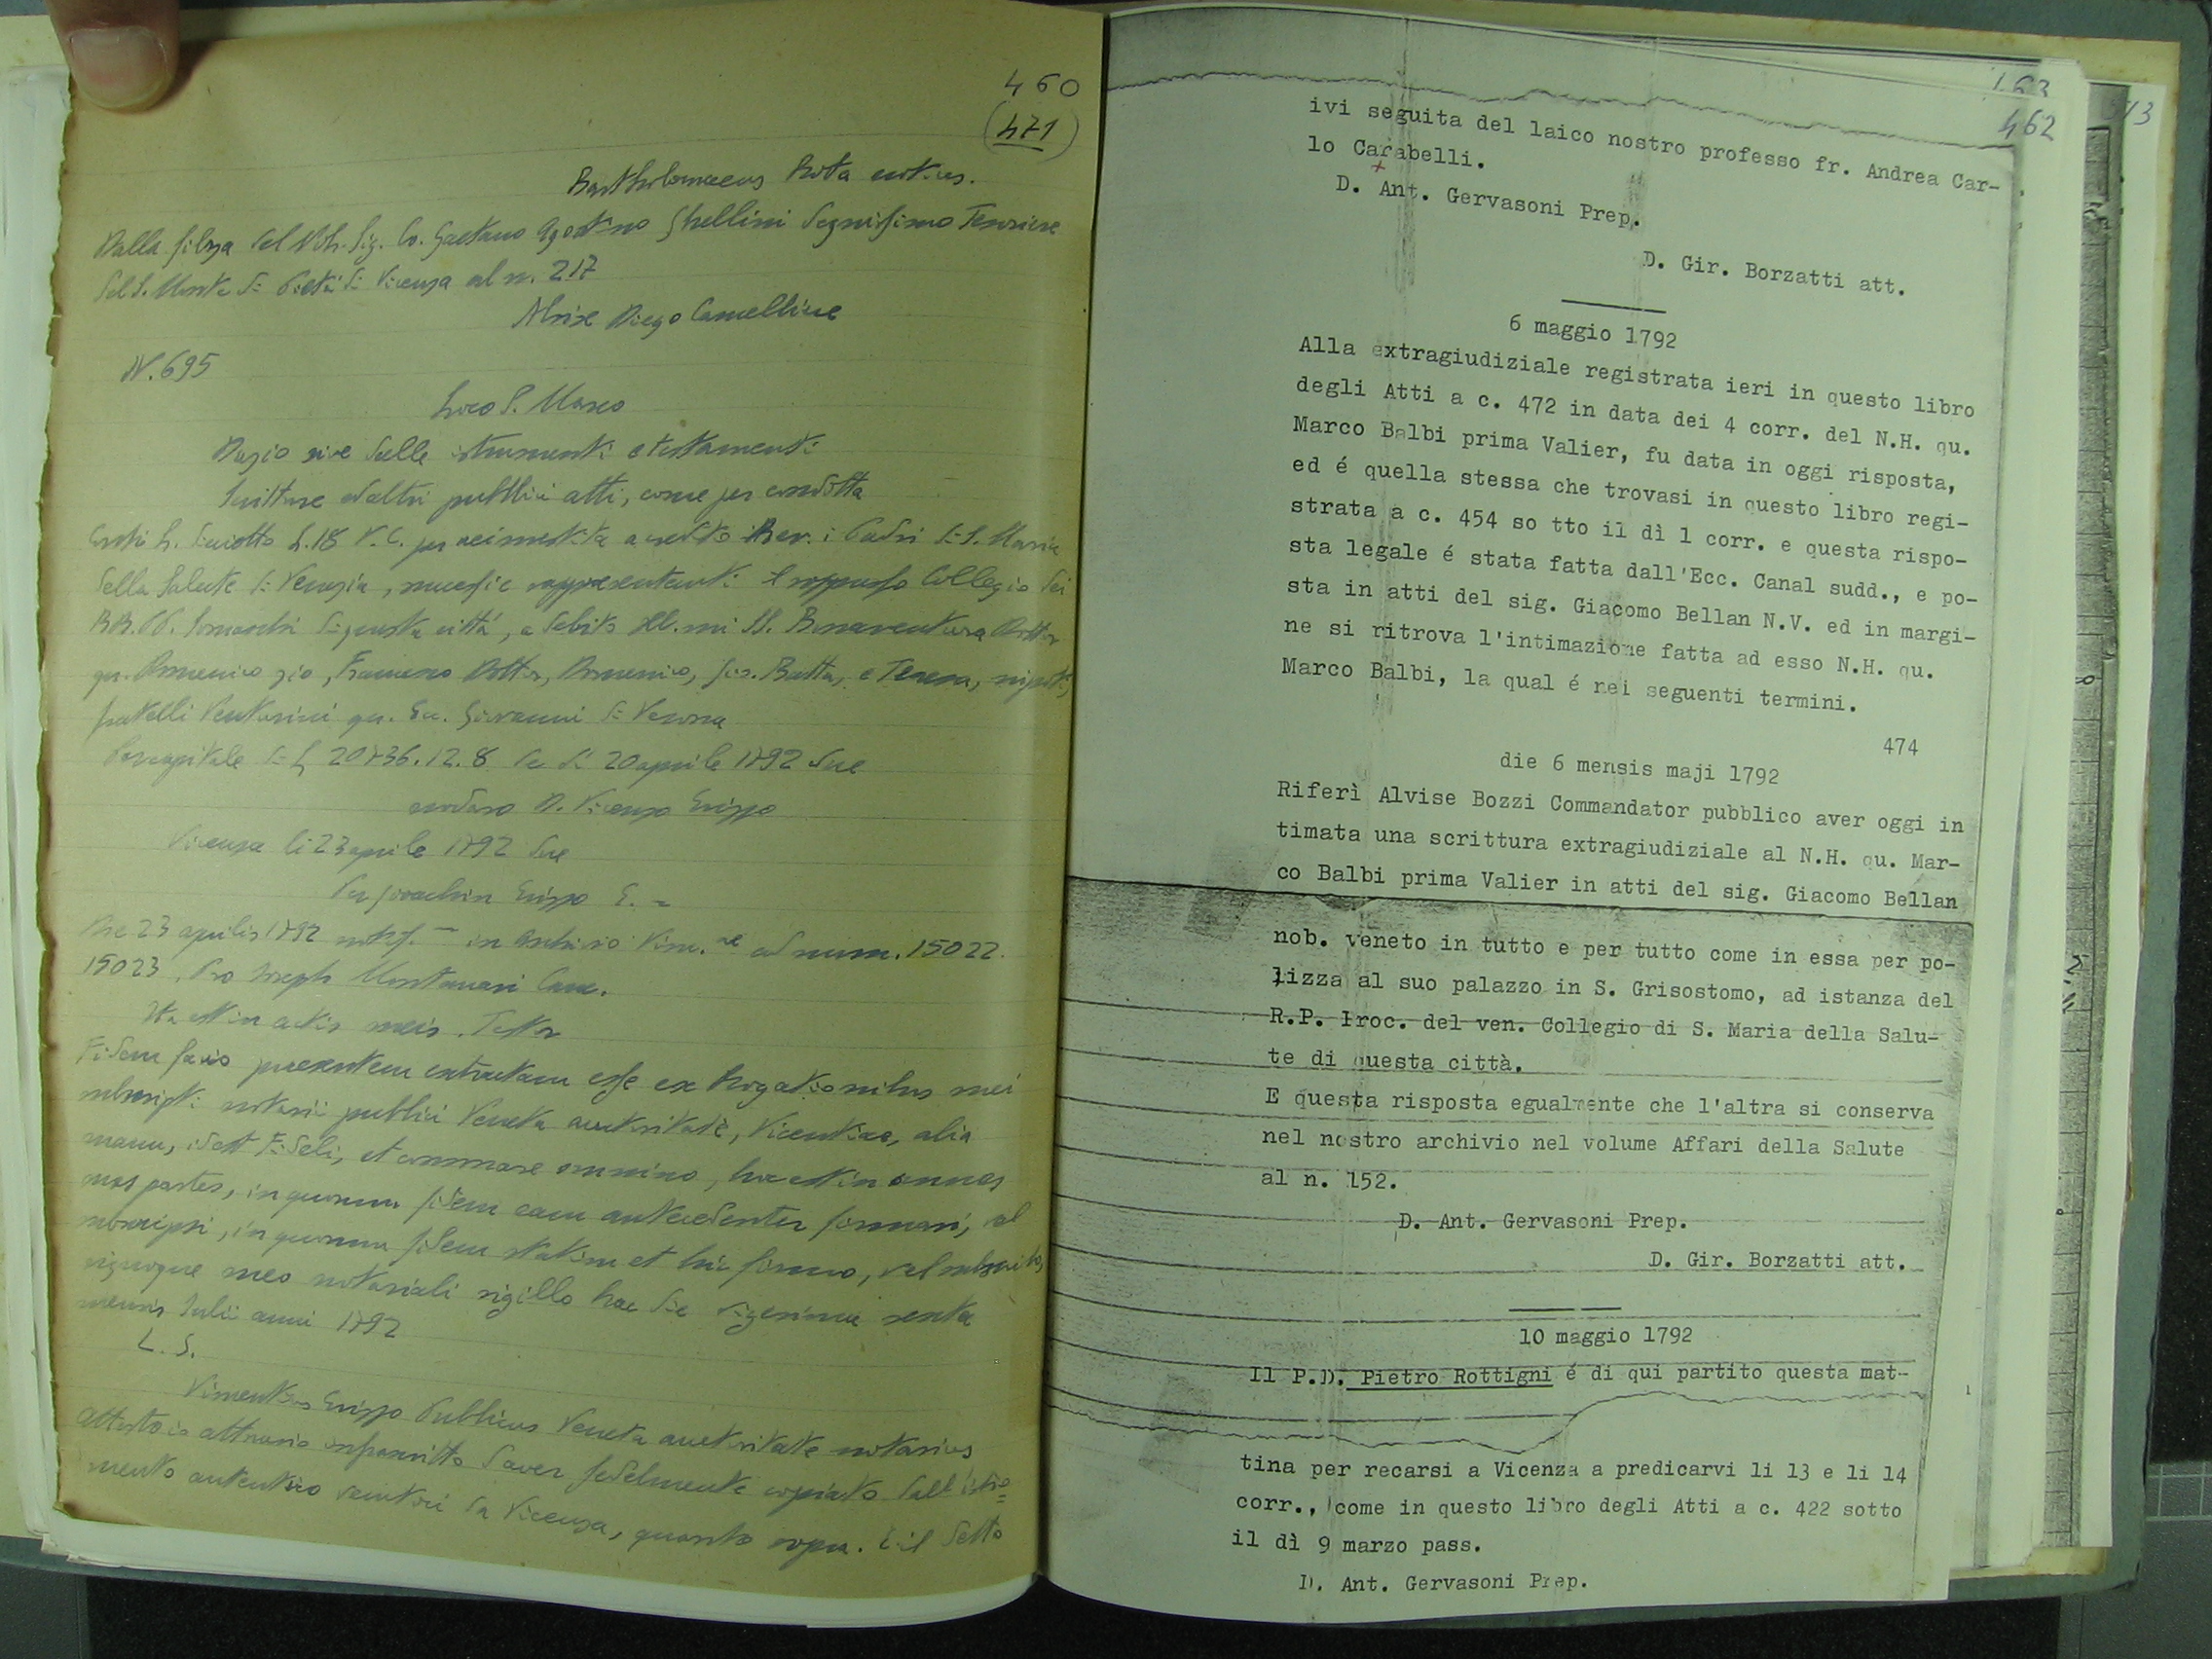 460
(471)
Bartholomaeus Rota notius.
Dalla filza del Nob. Sig. Co. Gaetano Agostino Ghellini Degnissimo Tesoriere
del S. Monte di Pietà di Vicenza al n. 217
Alvise Diego Camellise
N. 695
Loco S. Marco
Dazio sive delle istrumenti e testamenti
Scritture ed altri pubblici atti, come per condotta
L. 18 V. C. per a credito Rev. i Padri di S. Maria
della Salute di Venezia, rappresentanti il soppresso Collegio dei
RR. PP. Somaschi di questa città, a debito Ill.mi SS. Bonaventura Dottor
qu. Domenico zio, Francesco Dottor, Domenico, Gio. Batta, e Teresa, nipoti,
fratelli qu. Giovanni di Verona
Per capitale di L 20736.12.8 20 aprile 1792 due
D. Vicenzo Grippo
Vicenza li 23 aprile 1792 due
Per Gioachin Grippo
Die 23 aprilis 1792 in Archivio ad num. 15022
15023. Pro Joseph Montanari Canc.
Ita est in actis meis. Testor
Fidem facio praesentem extractam esse ex Rogationibus mei
subscripti notarii publici Veneta auctoritate, Vicentiae, alia
manu, idest Fideli, et omnino, hoc est in omnes
suas partes, in quorum fidem eam antecedenter firmavi, vel
in quorum fidem statim et hic firmo, vel subscribo,
signoque meo notariali sigillo hac die vigesima sexta
mensis Julii anni 1792
L. S.
Vincentius Grippo Publicus Veneta auctoritate notarius
Attesto io attuario infrascritto d'aver fedelmente copiato dall'istro=
mento autentico da Vicenza, quanto sopra. E il detto
513
463
462
ivi seguita del laico nostro professo fr. Andrea Car-
lo Carabelli.
D. Ant. Gervasoni Prep.
D. Gir. Borzatti att.
6 maggio 1792
Alla extragiudiziale registrata ieri in questo libro
degli Atti a c. 472 in data dei 4 corr. del N.H. qu.
Marco Balbi prima Valier, fu data in oggi risposta,
ed é quella stessa che trovasi in questo libro regi-
strata a c. 454 so tto il dì 1 corr. e questa rispo-
sta legale é stata fatta dall'Ecc. Canal sudd., e po-
sta in atti del sig. Giacomo Bellan N.V. ed in margi-
ne si ritrova l'intimazione fatta ad esso N.H. qu.
Marco Balbi, la qual é nei seguenti termini.
474
die 6 mensis maji 1792
Riferì Alvise Bozzi Commandator pubblico aver oggi in
timata una scrittura extragiudiziale al N.H. qu. Mar-
co Balbi prima Valier in atti del sig. Giacomo Bellan
nob. veneto in tutto e per tutto come in essa per po-
lizza al suo palazzo in S. Grisostomo, ad istanza del
R.P. Proc. del ven. Collegio di S. Maria della Salu-
te di questa città.
E questa risposta egualmente che l'altra si conserva
nel nostro archivio nel volume Affari della Salute
al n. 152.
D. Ant. Gervasoni Prep.
D. Gir. Borzatti att.
10 maggio 1792
Il P.D. Pietro Rottigni é di qui partito questa mat-
tina per recarsi a Vicenza a predicarvi li 13 e li 14
corr., come in questo libro degli Atti a c. 422 sotto
il dì 9 marzo pass.
D. Ant. Gervasoni Prep.